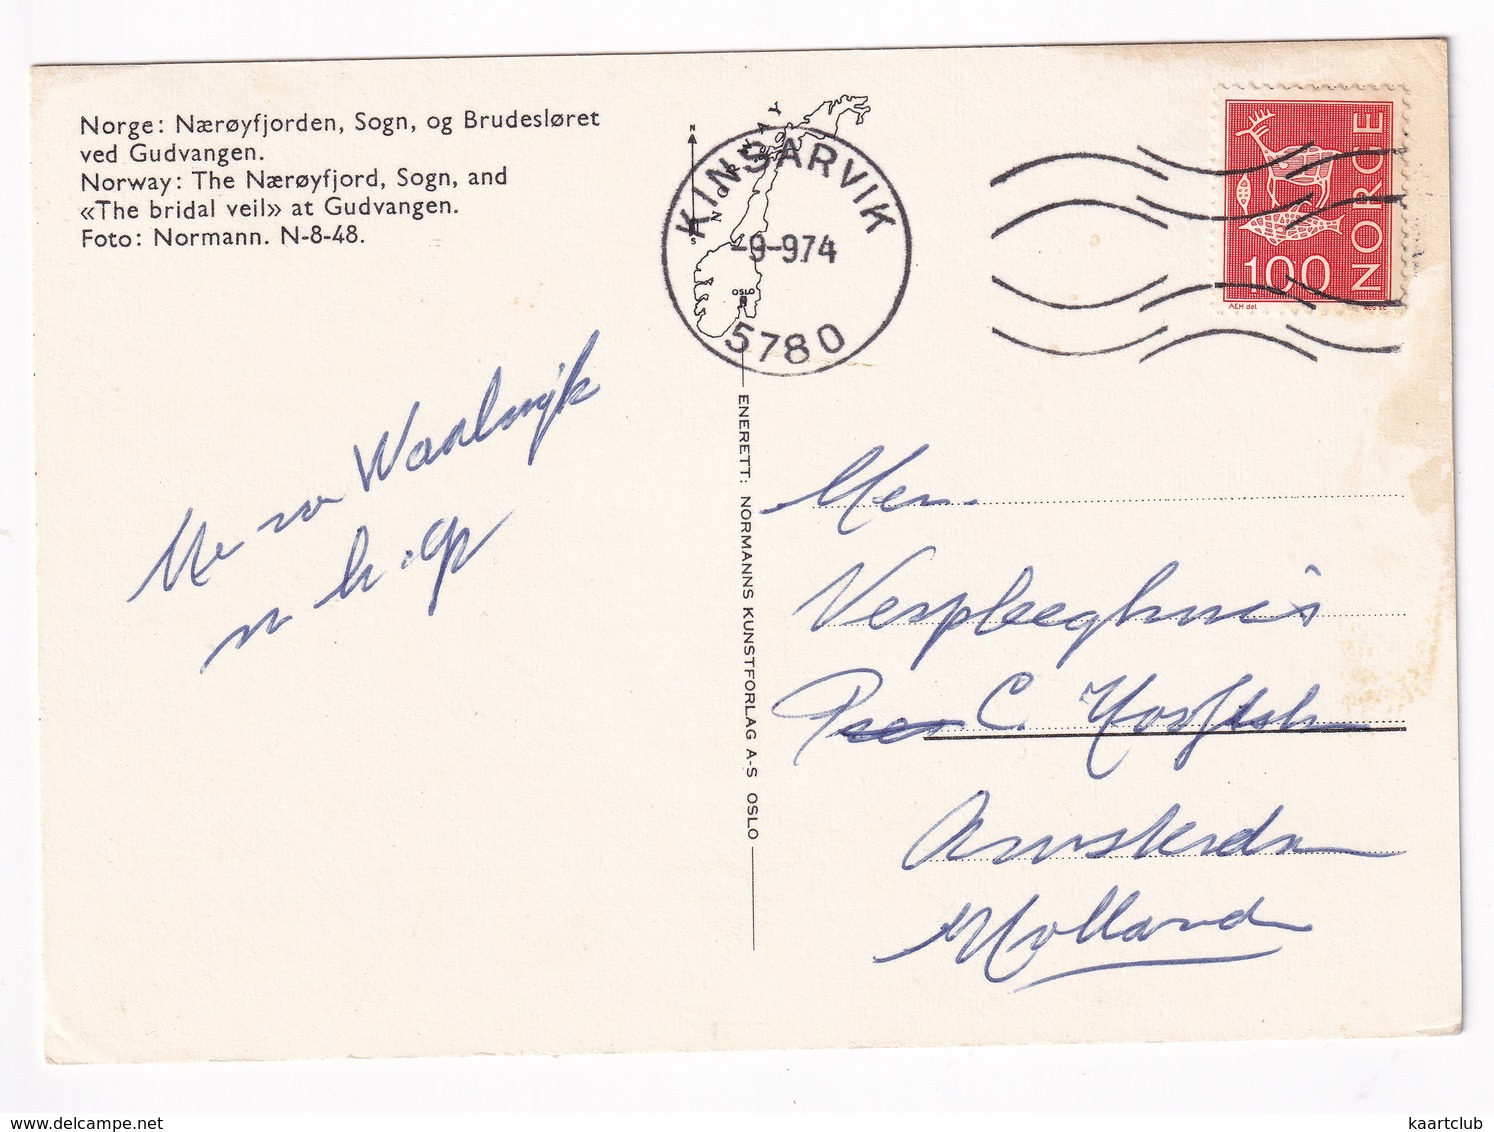 Norge: Nærøyfjorden, Sogn, og Brudesløret
ved Gudvangen.
Norway: The Nærøyfjord, Sogn, and
«The bridal veil» at Gudvangen.
Foto: Normann. N-8-48.
N
S
NORWAY
OSLO
KINSARVIK
-9-9.74
5780
NORGE
100
AEH del
ENERETT: NORMANNS KUNSTFORLAG A-S OSLO
Waalwijk
Verpleeghuis
C. Hooftstr
Amsterdam
Holland
www.delcampe.net
kaartclub